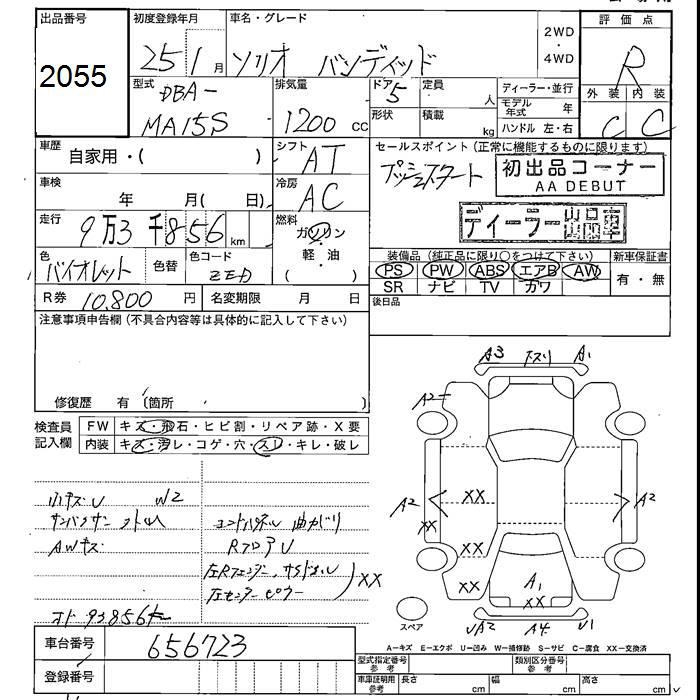 出品番号
2055
初度登録年月
25 1 月
車名・グレード
ソリオ バンディット
2WD
・
4WD
評価点
R
外装 内装
C C
型式
DBA-
MA15S
排気量
1200 cc
ドア
5
形状
定員
人
積載
kg
ディーラー・並行
モデル年式 年
ハンドル 左・右
車歴
自家用・( )
シフト
AT
セールスポイント(正常に機能するものに限ります)
プッシュスタート
初出品コーナー
AA DEBUT
ディーラー出品車
車検
年 月( 日)
冷房
AC
走行
9万3千856 km
燃料
ガソリン
・
軽・油
( )
色
バイオレット
色替
色コード
ZED
装備品(純正品に限り○をつけて下さい)
PS PW ABS エアB AW
SR ナビ TV カワ
新車保証書
有・無
R券
10.800 円
名変期限 月 日
後日品
注意事項申告欄(不具合内容等は具体的に記入して下さい)
修復歴 有 (箇所 )
検査員
記入欄
FW キズ・飛石・ヒビ割・リペア跡・X要
内装 キズ・汚レ・コゲ・穴・スレ・キレ・破レ
小キズU W2
AWキズ
コーナーパネル 曲がり
RフロアU
左Rフェンダー, サイドシル
左センターピラー
XX
オド 93856km
A3 下スリ A1
A2
A2
XX
XX
XX
XX
A2
A1
XX
UA2 A4 U1
スペア
A-キズ E-エクボ U-凹み W-補修跡 S-サビ C-腐食 XX-交換済
車台番号
656723
登録番号
型式指定番号
参考
類別区分番号
参考
車庫証明用
参考
長さ cm
幅 cm
高さ cm